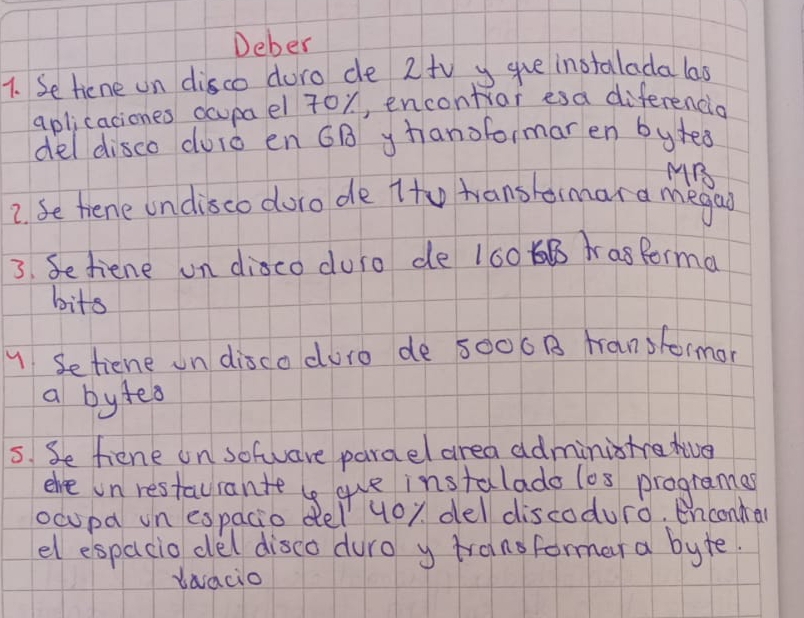 Deber
1. Se tiene un disco duro de 2 tv y que instalada las
aplicaciones ocupa el 70%, encontrar esa diferencia
del disco duro en GB y transformar en bytes
MB
2. Se tiene un disco duro de 1 tv transformar a megas
3. Se tiene un disco duro de 160 GB trasforma
bits
4. Se tiene un disco duro de 500 GB transformar
a bytes
5. Se tiene un sofware para el area administrativa
de un restaurante y que instalado los programas
ocupa un espacio del 40% del disco duro. Encontrar
el espacio del disco duro y transformar a byte.
vacio